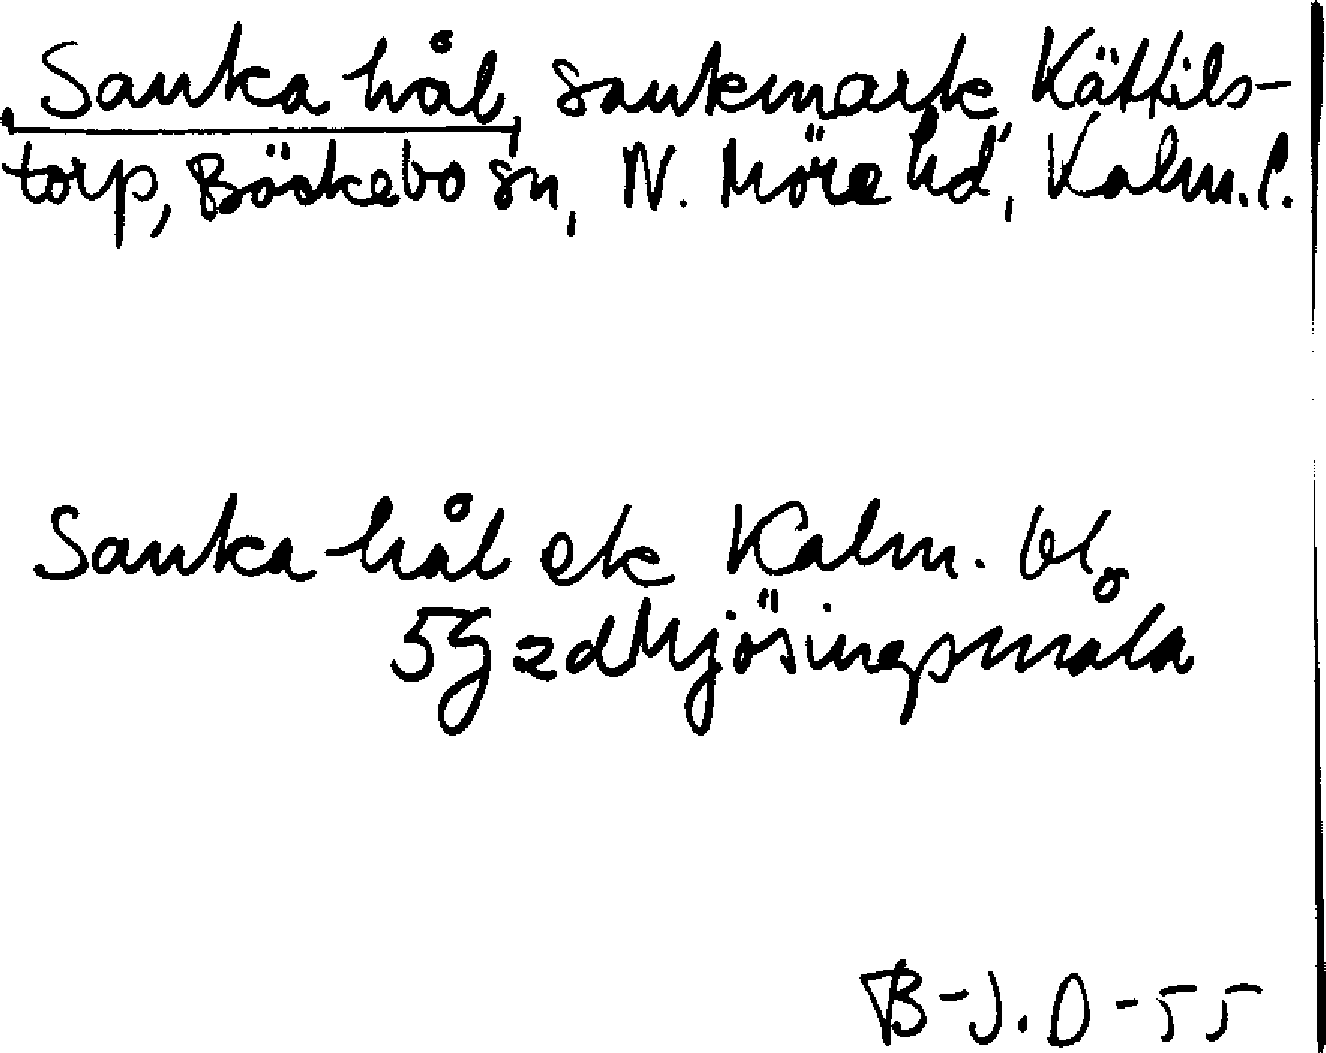 Sanka hål, sankmark, Kättils-
torp, Bäckebo sn, N. Möre hd, Kalm. l.
Sanka hål ek Kalm. bl.
5G 2d Mjösingsmåla
B-J.O-55